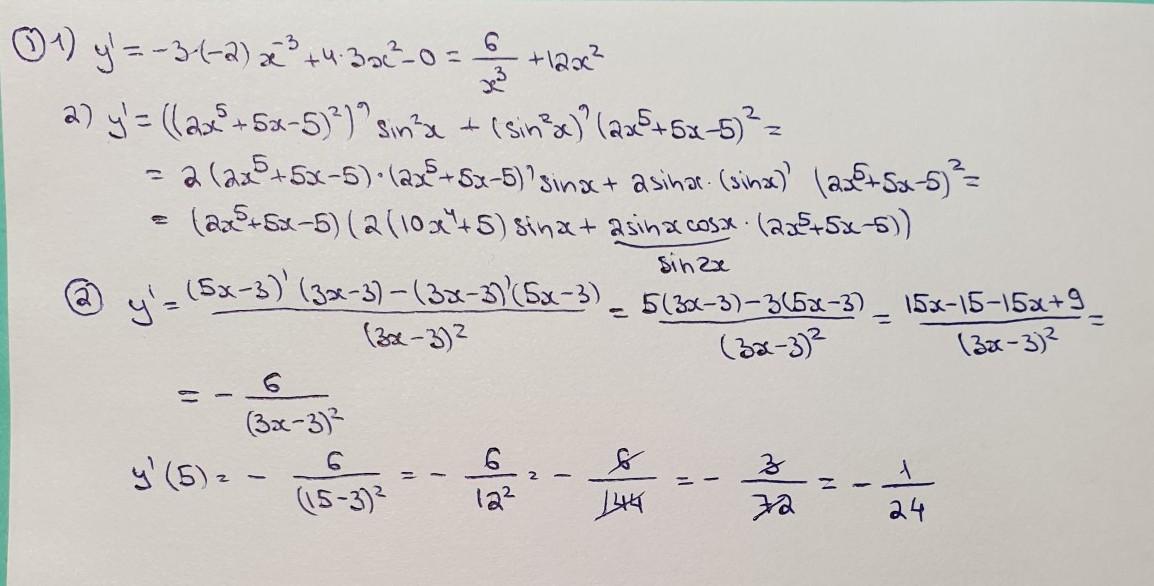 ① 1) y' = -3·(-2) x⁻³ + 4·3x² - 0 = 6/x³ + 12x²
2) y' = ((2x⁵+5x-5)²)' sin²x + (sin²x)' (2x⁵+5x-5)² =
= 2(2x⁵+5x-5)·(2x⁵+5x-5)' sinx + 2sinx·(sinx)' (2x⁵+5x-5)² =
= (2x⁵+5x-5)(2(10x⁴+5) sinx + 2sinxcosx·(2x⁵+5x-5))
sin2x
② y' = ((5x-3)'(3x-3) - (3x-3)'(5x-3))/(3x-3)² = (5(3x-3)-3(5x-3))/(3x-3)² = (15x-15-15x+9)/(3x-3)² =
= - 6/(3x-3)²
y'(5) = - 6/(15-3)² = - 6/12² = - 6/144 = - 3/72 = - 1/24